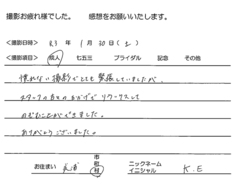 撮影お疲れ様でした。 感想をお願いいたします。
<撮影日時> R3年 1月 30日(土)
<撮影項目> 成人 七五三 ブライダル 記念 その他
慣れない撮影でとても緊張していましたが、
スタッフの方々のおかげでリラックスして
のぞむことができました。
ありがとうございました。
お住まい 市 町 村 ニックネーム イニシャル K.E